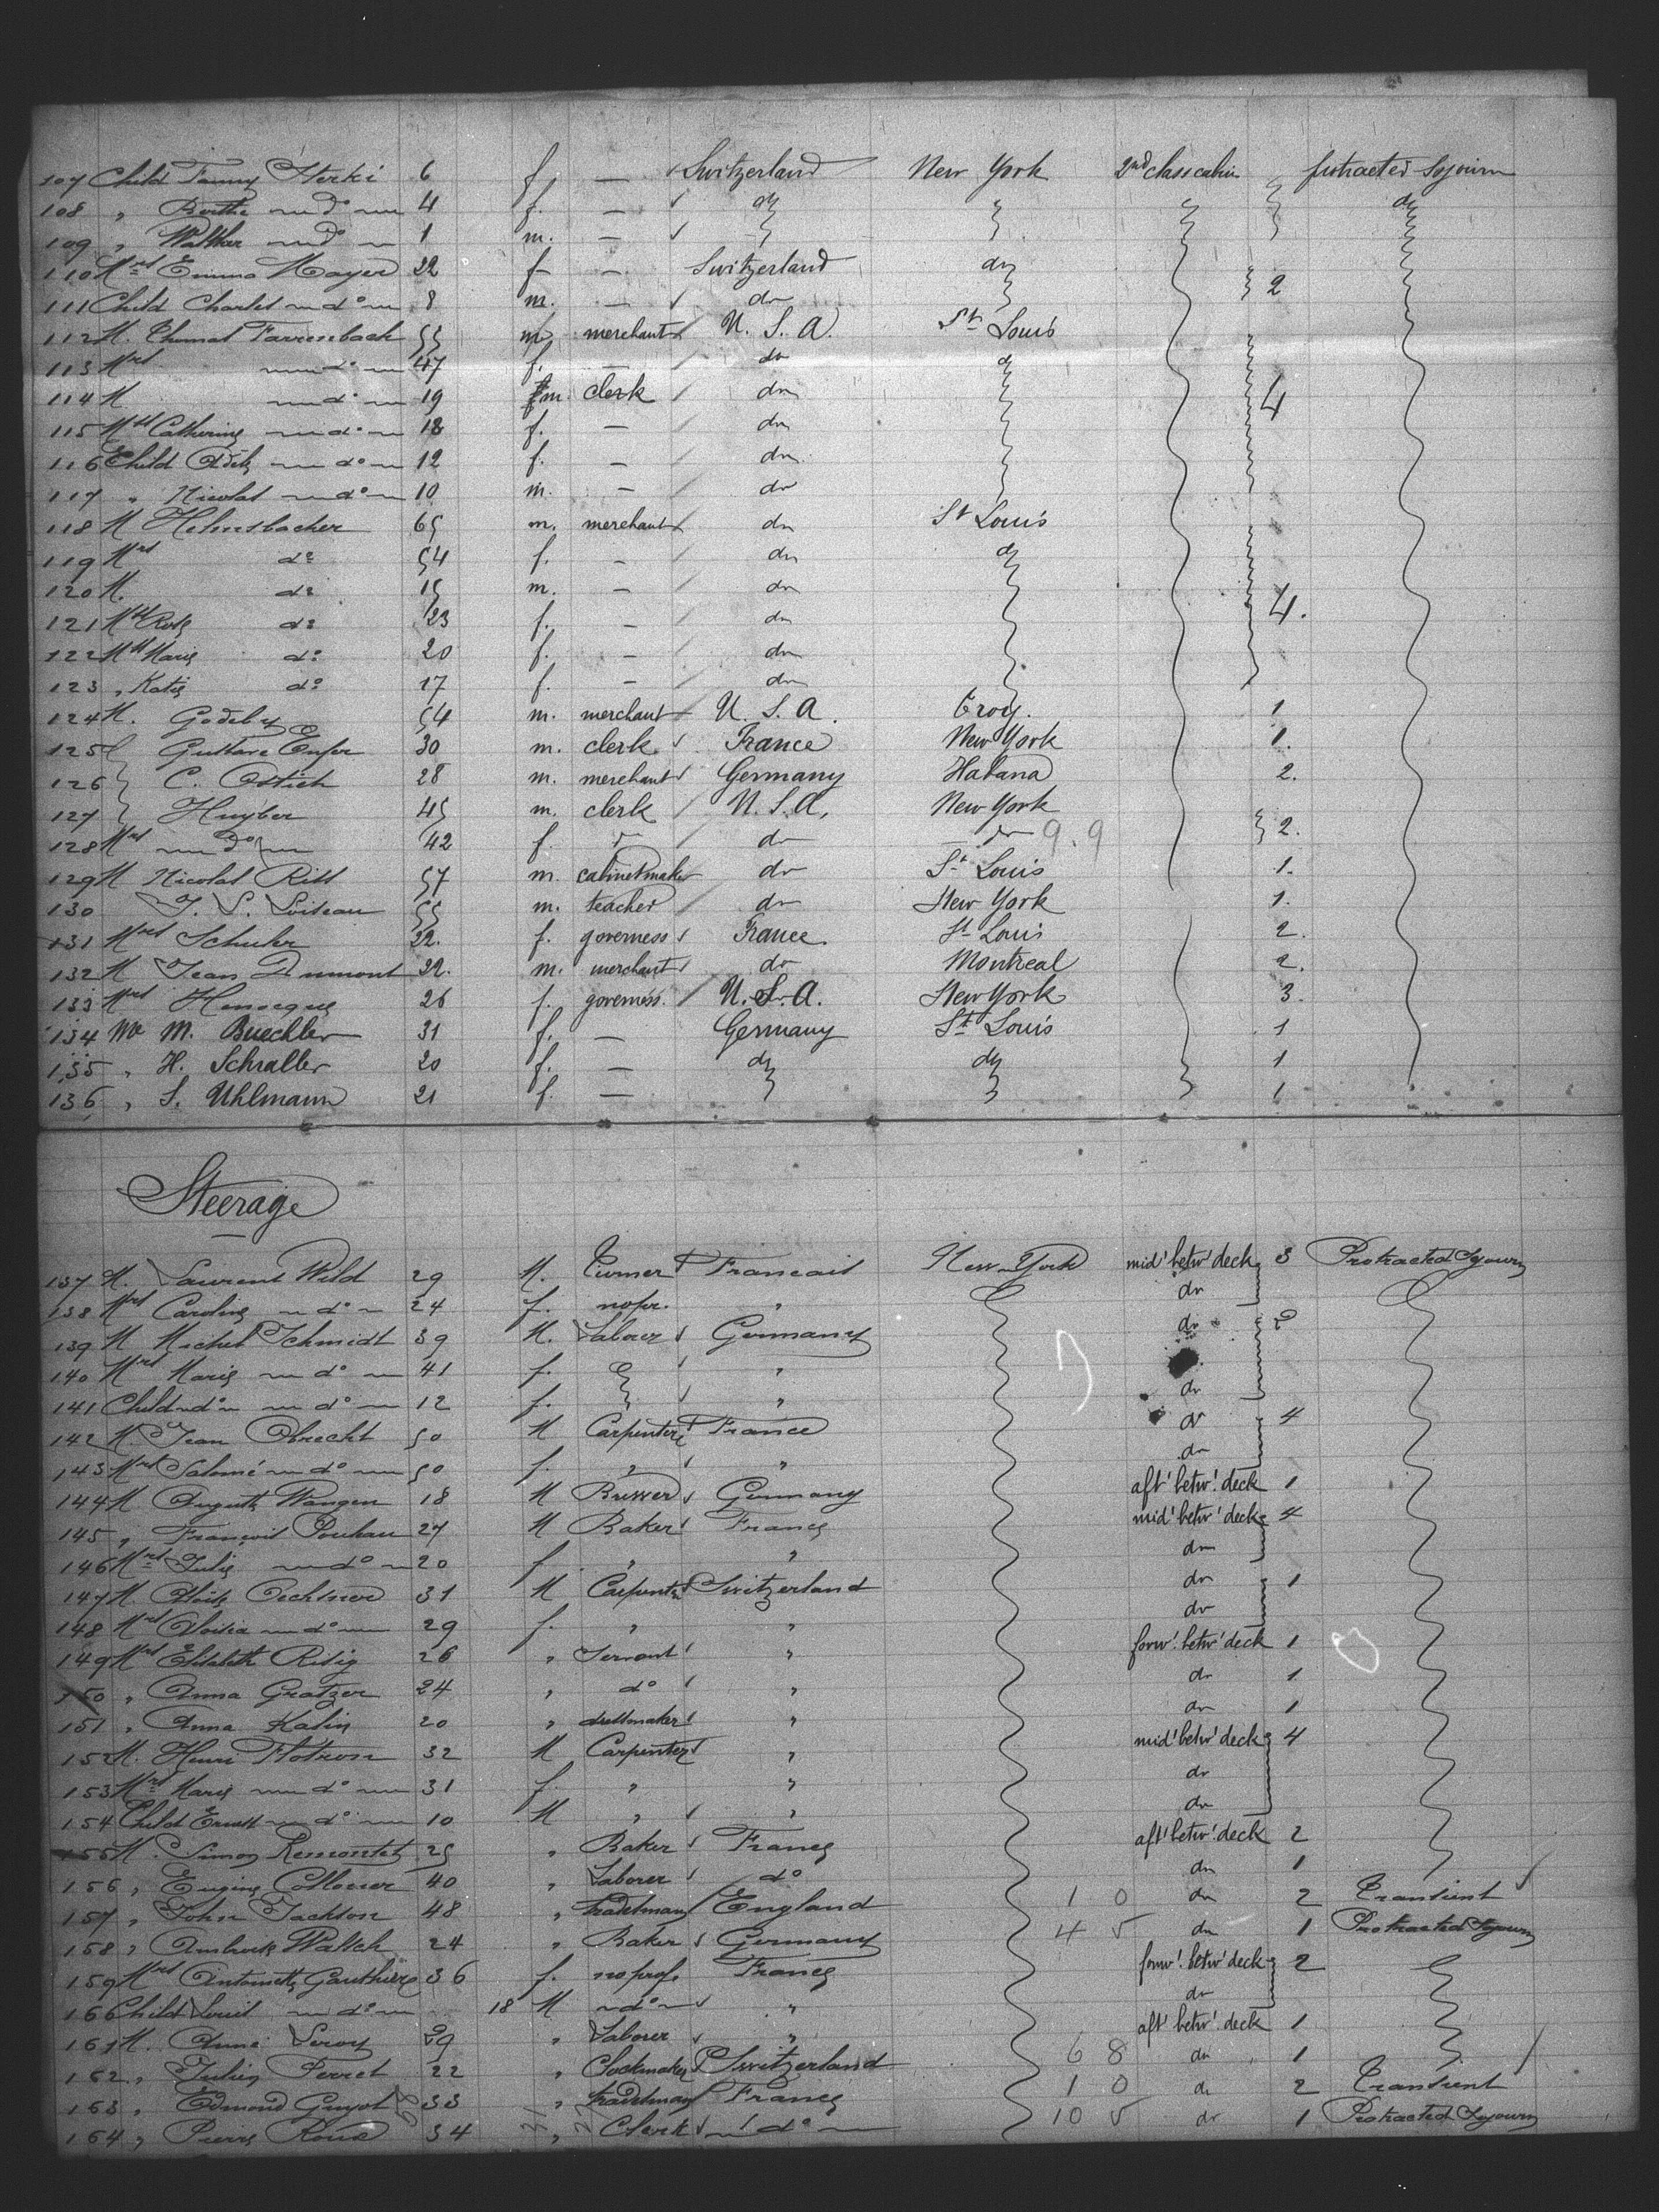 107 Child Fanny Sterki 6 f. — Switzerland New York 2nd class cabin protracted sojourn
108 " Berthe do 4 f. — do
109 " Walther do 1 m. —
110 Mrs Emma Mayer 22 f — Switzerland do 2
111 Child Charles do 8 m. — do
112 M. Thomas Farrenbach 55 m. merchant U. S. A. St Louis
113 Mrs do 47 f. — do do
114 M do 19 m. clerk do 4
115 Mlle Catherine do 18 f. — do
116 Child do 12 f. — do
117 " Nicolas do 10 m. — do
118 M Helmsbacher 65 m. merchant do St Louis
119 Mrs do 54 f. - do do
120 M. do 15 m. — do
121 Mlle Rose do 23 f. - do 4.
122 Mlle Marie do 20 f. — do
123 " Katie do 17 f. - do
124 M. Godeby 54 m. merchant U. S. A. Troy. 1
125 Gustave Enfer 30 m. clerk France New York 1.
126 C. Ostich 28 m. merchant Germany Habana 2.
127 Huyber 45 m. clerk U. S. A. New York
128 Mrs do 42 f. do do 9.9 2.
129 M Nicolas Ritt 57 m. cabinetmaker do St Louis 1.
130 J. S. Loiseau 55 m. teacher do New York 1.
131 Mrs Schuler 22. f. governess France St Louis 2.
132 M Jean Dumont 22. m. merchant do Montreal 2.
133 Mrs Henocque 26 f. governess. U. S. A. New York 3.
134 Me M. Buechler 31 f. — Germany St Louis 1
135 " H. Schraller 20 f. — do do 1
136 " S. Uhlmann 21 f. — 1
Steerage
137 M. Laurent Wild 29 M. Turner Francais New York mid' betw' deck 3 Protracted Sojourn
138 Mrs Caroline do 24 f. nopr. " do
139 M Michel Schmidt 39 M. Laborer Germany do 2
140 Mrs Marie do 41 f. "
141 Child do do 12 f. " do
142 M. Jean Obrecht 50 M Carpenter France do 4
143 Mrs Salomé do 50 f. " " do
144 M. Auguste Wangen 18 M Brewer Germany aft' betw'. deck 1
145 " François Pouhau 27 M Baker France mid' betw' deck 4
146 Mrs Julie do 20 f. " " do
147 M. Aloïs Oechsner 31 M Carpenter Switzerland do 1
148 Mrs Aloisia do 29 f. " " do
149 Mrs Elisabeth Risig 26 " Servant " forw'. betw' deck 1
150 " Anna Gratzer 24 " do " do 1
151 " Anna Kalin 20 " dressmaker " do 1
152 M. Henri Flotron 32 M Carpenter " mid' betw' deck 4
153 Mrs Marie do 31 f. " " do
154 Child Ernest do 10 M " " do
155 M. Simon Remontet 25 " Baker France aft' betw'. deck 2
156 " Eugène 40 " Laborer do do 1
157 " John Jackson 48 " tradesman England 1 0 do 2 Transient
158 " Ambrose Walsch 24 " Baker Germany 4 5 do 1 Protracted Sojourn
159 Mrs Antoinette Gauthière 36 f. no prof. France forw'. betw' deck 2
166 Child Louis do 18 M do " do
161 M. Leroy 29 " Laborer " aft' betw'. deck 1
162 " Julien Perret 22 " Clockmaker Switzerland 6 8 do 1
163 " Edmond Guyot 33 " tradesman France 1 0 do 2 Transient
164 " Pierre Roux 34 " Clerk do 10 5 do 1 Protracted Sojourn